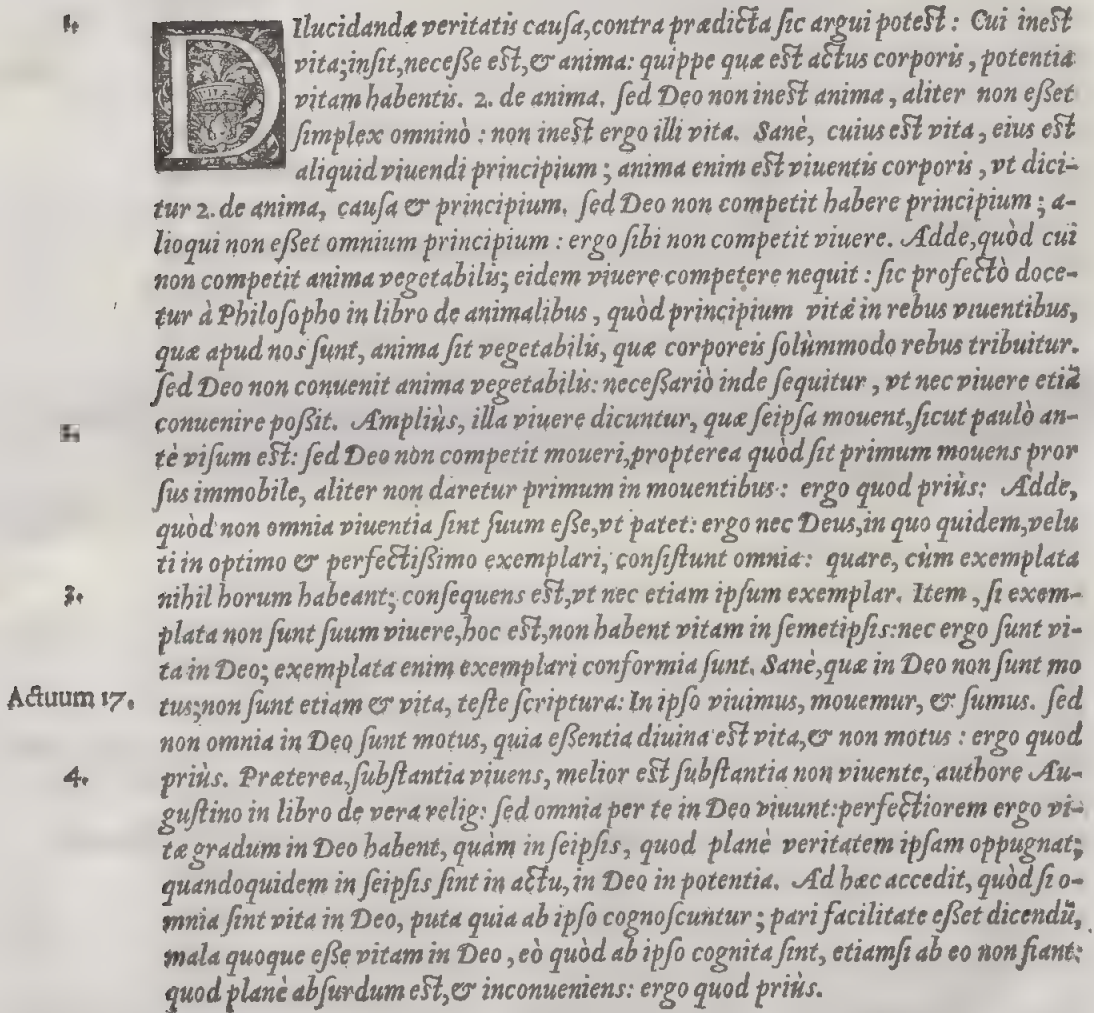 1.
Dilucidandæ veritatis cauſa, contra prædicta ſic argui poteſt: Cui ineſt
vita; inſit, neceſſe eſt, & anima: quippe quæ eſt actus corporis, potentia
vitam habentis. 2. de anima. ſed Deo non ineſt anima, aliter non eſſet
ſimplex omninò: non ineſt ergo illi vita. Sanè, cuius eſt vita, eius eſt
aliquid viuendi principium; anima enim eſt viuentis corporis, vt dici-
tur 2. de anima, cauſa & principium. ſed Deo non competit habere principium; a-
lioqui non eſſet omnium principium: ergo ſibi non competit viuere. Adde, quòd cui
non competit anima vegetabilis; eidem viuere competere nequit: ſic profectò doce-
tur à Philoſopho in libro de animalibus, quòd principium vitæ in rebus viuentibus,
quæ apud nos ſunt, anima ſit vegetabilis, quæ corporeis ſolùmmodo rebus tribuitur.
ſed Deo non conuenit anima vegetabilis: neceſſariò inde ſequitur, vt nec viuere etiã
conuenire poſſit. Ampliùs, illa viuere dicuntur, quæ ſeipſa mouent, ſicut paulò an-
tè viſum eſt: ſed Deo non competit moueri, propterea quòd ſit primum mouens pror
ſus immobile, aliter non daretur primum in mouentibus: ergo quod priùs: Adde,
quòd non omnia viuentia ſint ſuum eſſe, vt patet: ergo nec Deus, in quo quidem, velu
ti in optimo & perfectiſſimo exemplari, conſiſtunt omnia: quare, cùm exemplata
3.
nihil horum habeant; conſequens eſt, vt nec etiam ipſum exemplar. Item, ſi exem-
plata non ſunt ſuum viuere, hoc eſt, non habent vitam in ſemetipſis: nec ergo ſunt vi-
ta in Deo; exemplata enim exemplari conformia ſunt. Sanè, quæ in Deo non ſunt mo
Actuum 17.
tus; non ſunt etiam & vita, teſte ſcriptura: In ipſo viuimus, mouemur, & ſumus. ſed
non omnia in Deo ſunt motus, quia eſſentia diuina eſt vita, & non motus: ergo quod
4.
priùs. Præterea, ſubſtantia viuens, melior eſt ſubſtantia non viuente, authore Au-
guſtino in libro de vera relig: ſed omnia per te in Deo viuunt: perfectiorem ergo vi-
tæ gradum in Deo habent, quàm in ſeipſis, quod planè veritatem ipſam oppugnat;
quandoquidem in ſeipſis ſint in actu, in Deo in potentia. Ad hæc accedit, quòd ſi o-
mnia ſint vita in Deo, puta quia ab ipſo cognoſcuntur; pari facilitate eſſet dicendũ,
mala quoque eſſe vitam in Deo, eò quòd ab ipſo cognita ſint, etiamſi ab eo non fiant:
quod planè abſurdum eſt, & inconueniens: ergo quod priùs.